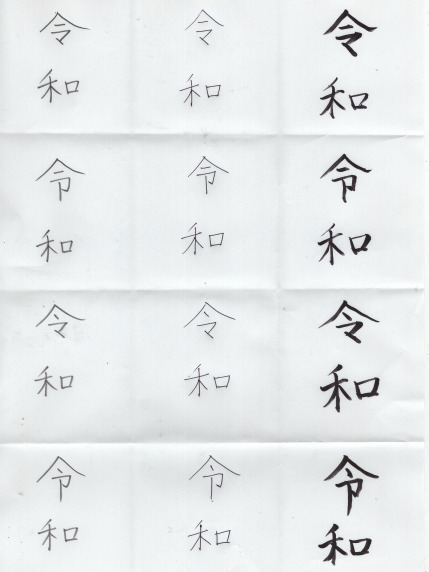 令和
令和
令和
令和
令和
令和
令和
令和
令和
令和
令和
令和